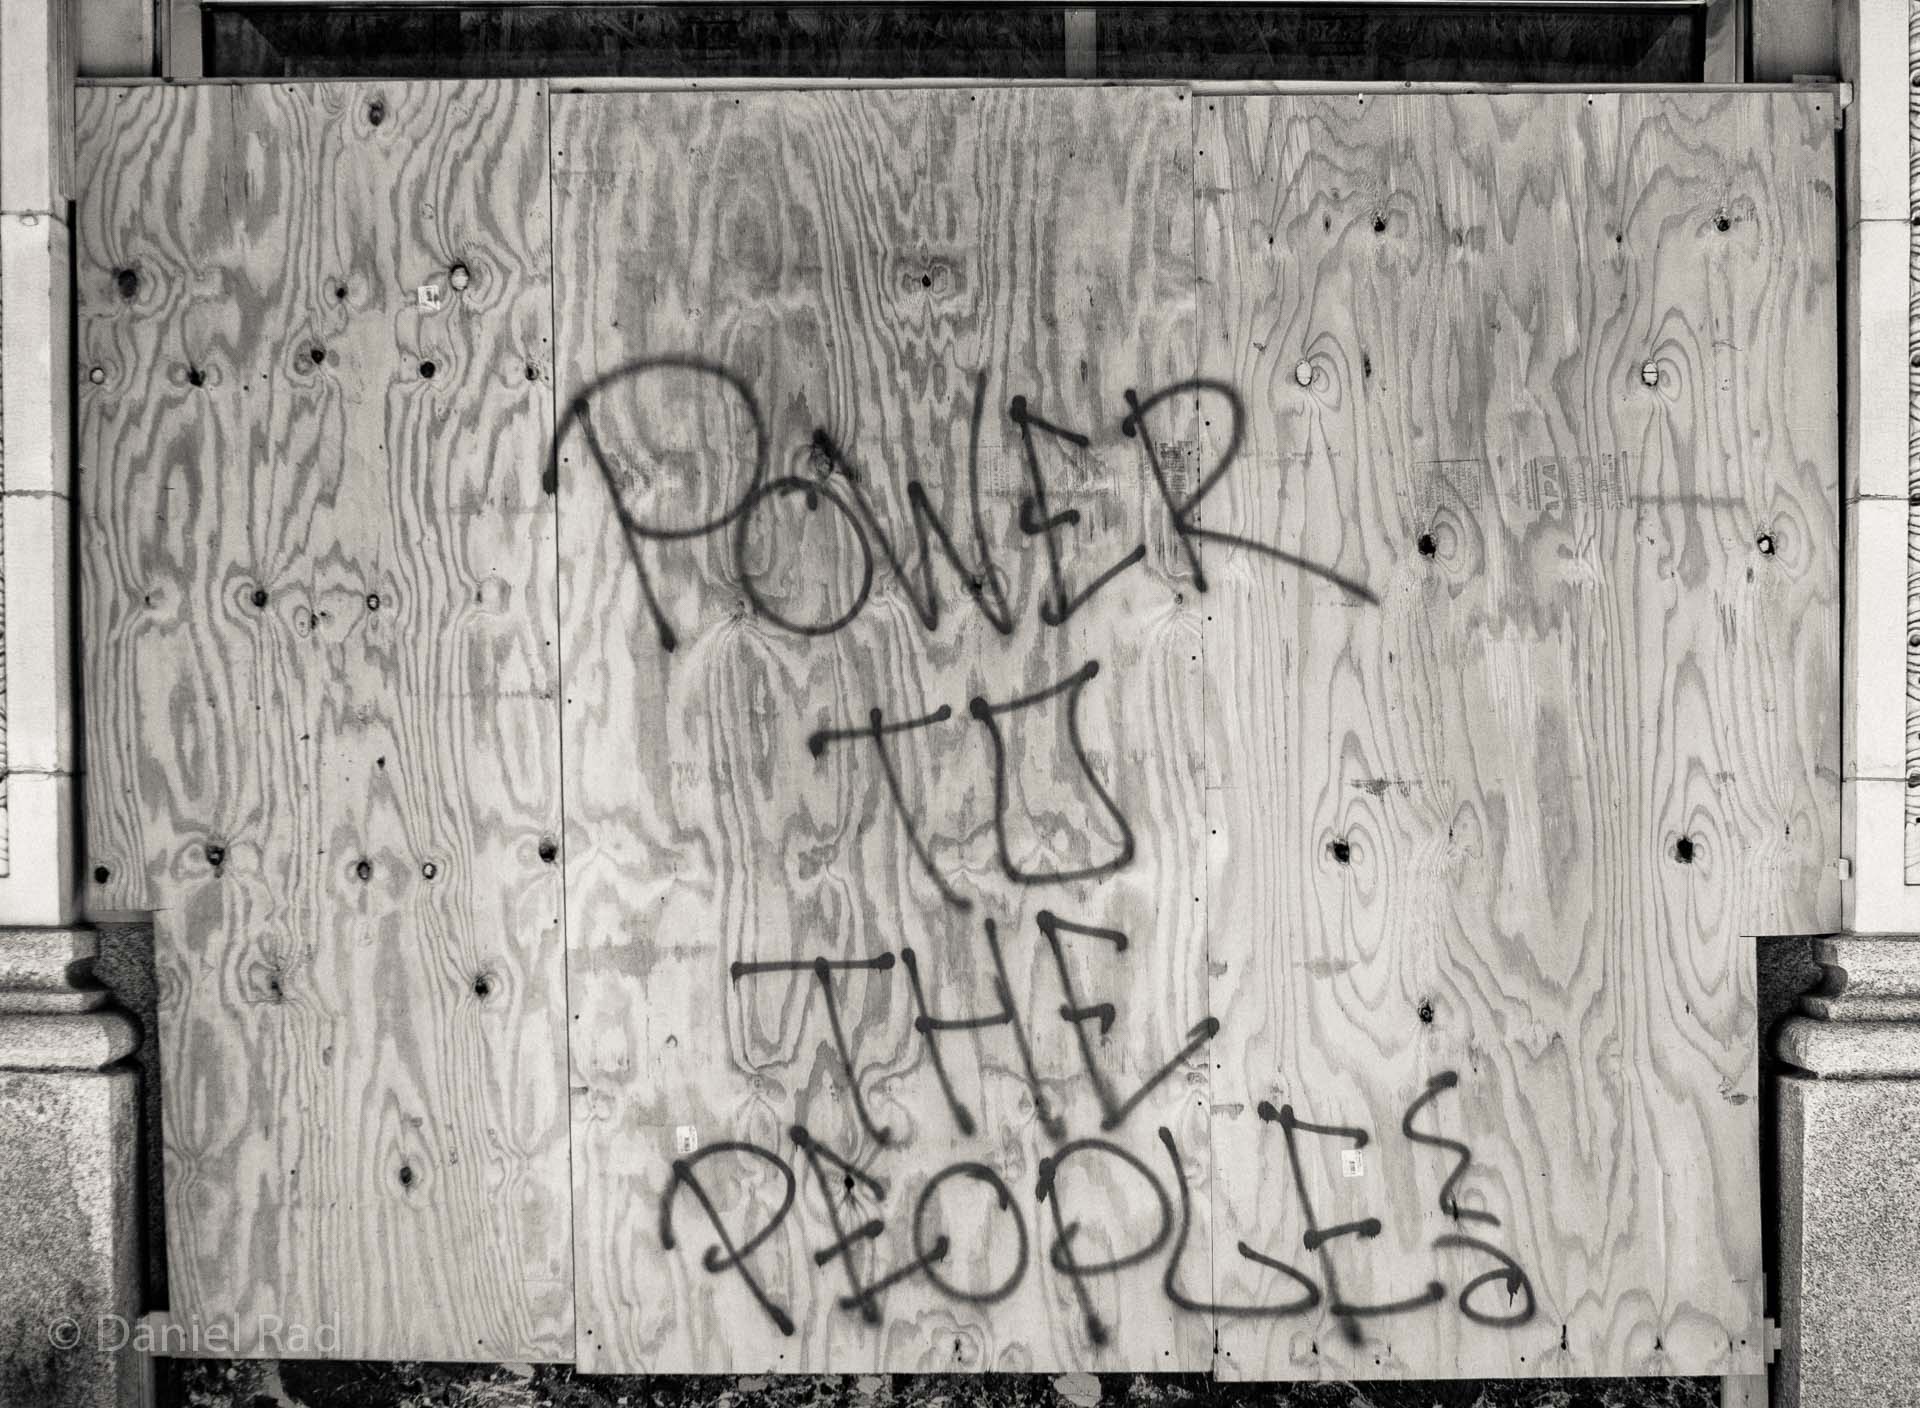 POWER
TO
THE
PEOPLE
APA
© Daniel Rad